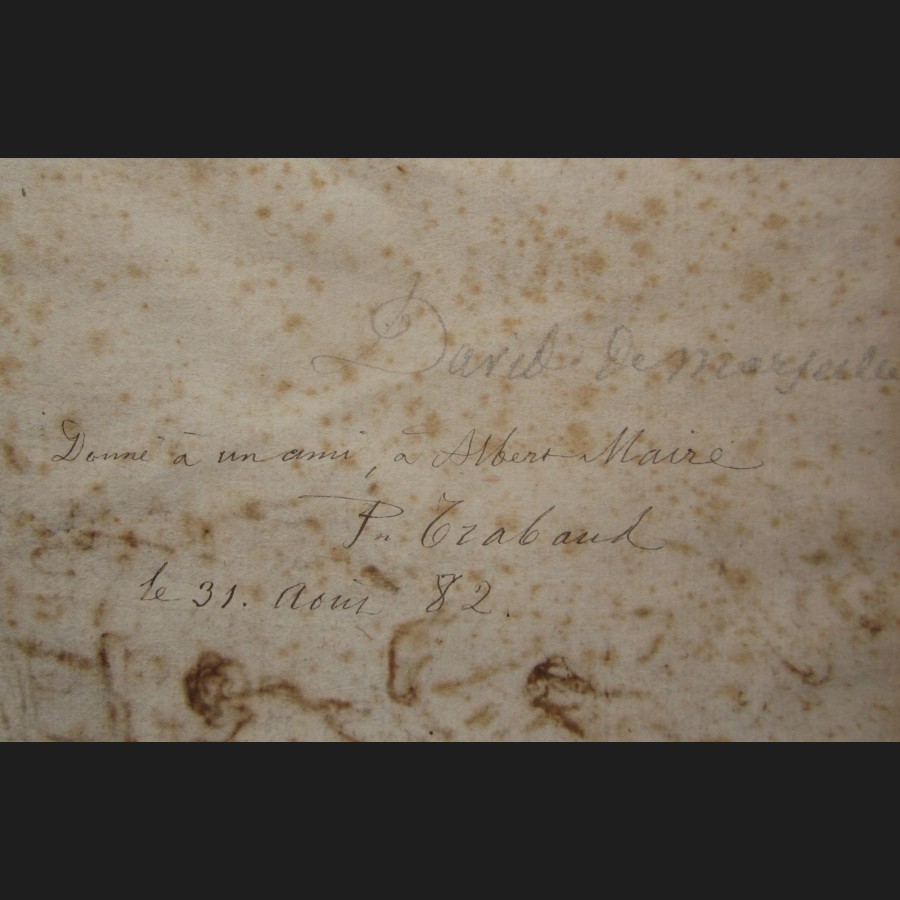 David de
Donné à un ami, à Albert Maire
Pn Trabaud
le 31. Août 82.